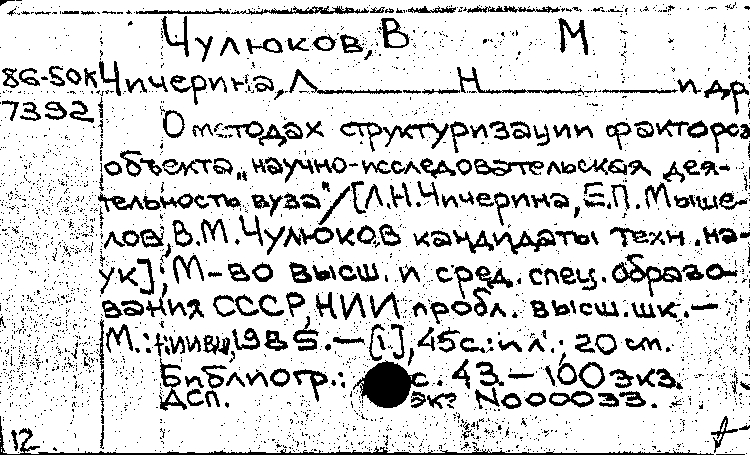 Чулюков, В М
86-50к Чичерина, Л Н и др
7392
О методах структуризации факторов
объекта „научно-исследовательская дея-
тельность вуза" / [Л.Н.Чичерина, Е.П.Мыше-
лов, В.М.Чулюков кандидаты техн. на-
ук]; М-во высш. и сред. спец. образо-
вания СССР, НИИ пробл. высш. шк. —
М.: НИИВШ, 1985. — [1], 45 с.: ил.; 20 см.
Библиогр.: с. 43. — 100 экз.
ДСП. Экз N000033.
12